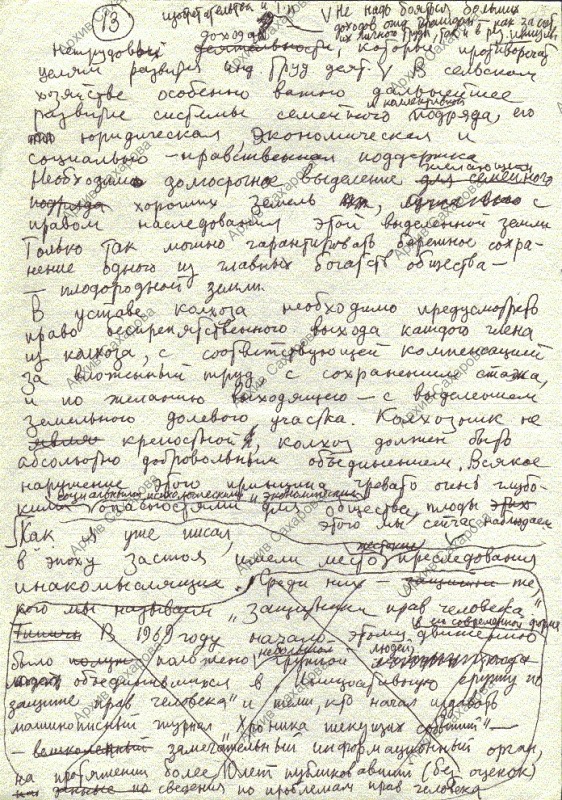 13
изобретательства и т.п.
V Не надо бояться больших
доходов
доходов от
как за счет
их личного труда, так и в рез. инициат.
Нетрудовых деятельности, которые противоречат
целям развития инд. труд. деят. V В сельском
хозяйстве особенно важно дальнейшее
и коллективного
развитие системы семейного подряда, его
юридическая, экономическая и
социально-нравственная поддержка.
желающим
Необходимо долгосрочное выделение для семейного
подряда хороших земель, с
правом наследования этой выделенной земли
Только так можно гарантировать бережное сохра-
нение одного из главных богатств общества —
— плодородной земли.
В уставе колхоза необходимо предусмотреть
право беспрепятственного выхода каждого члена
из колхоза, с соответствующей компенсацией
за вложенный труд, с сохранением стажа,
и по желанию выходящего — с выделением
земельного долевого участка. Колхозник не
крепостной, колхоз должен быть
абсолютно добровольным объединением. Всякое
нарушение этого принципа чревато очень глубо-
социальными психологическими и экономическими
кими опасностями для общества, плоды этих
этого мы сейчас наблюдаем
Как я уже писал,
жестокие
в эпоху застоя имели место преследования
инакомыслящих. Среди них — защитники те,
кого мы называем "Защитники прав человека"
в его современной форме
В 1969 году начало этому движению
небольшой людей,
было положено группой
объединившихся в "Инициативную группу по
защите прав человека" и теми, кто начал издавать
машинописный журнал "Хроника текущих событий" —
— великолепный замечательный информационный орган,
на протяжении более 10 лет публиковавший (без оценок)
данные сведения по проблемам прав человека
Архив Сахарова